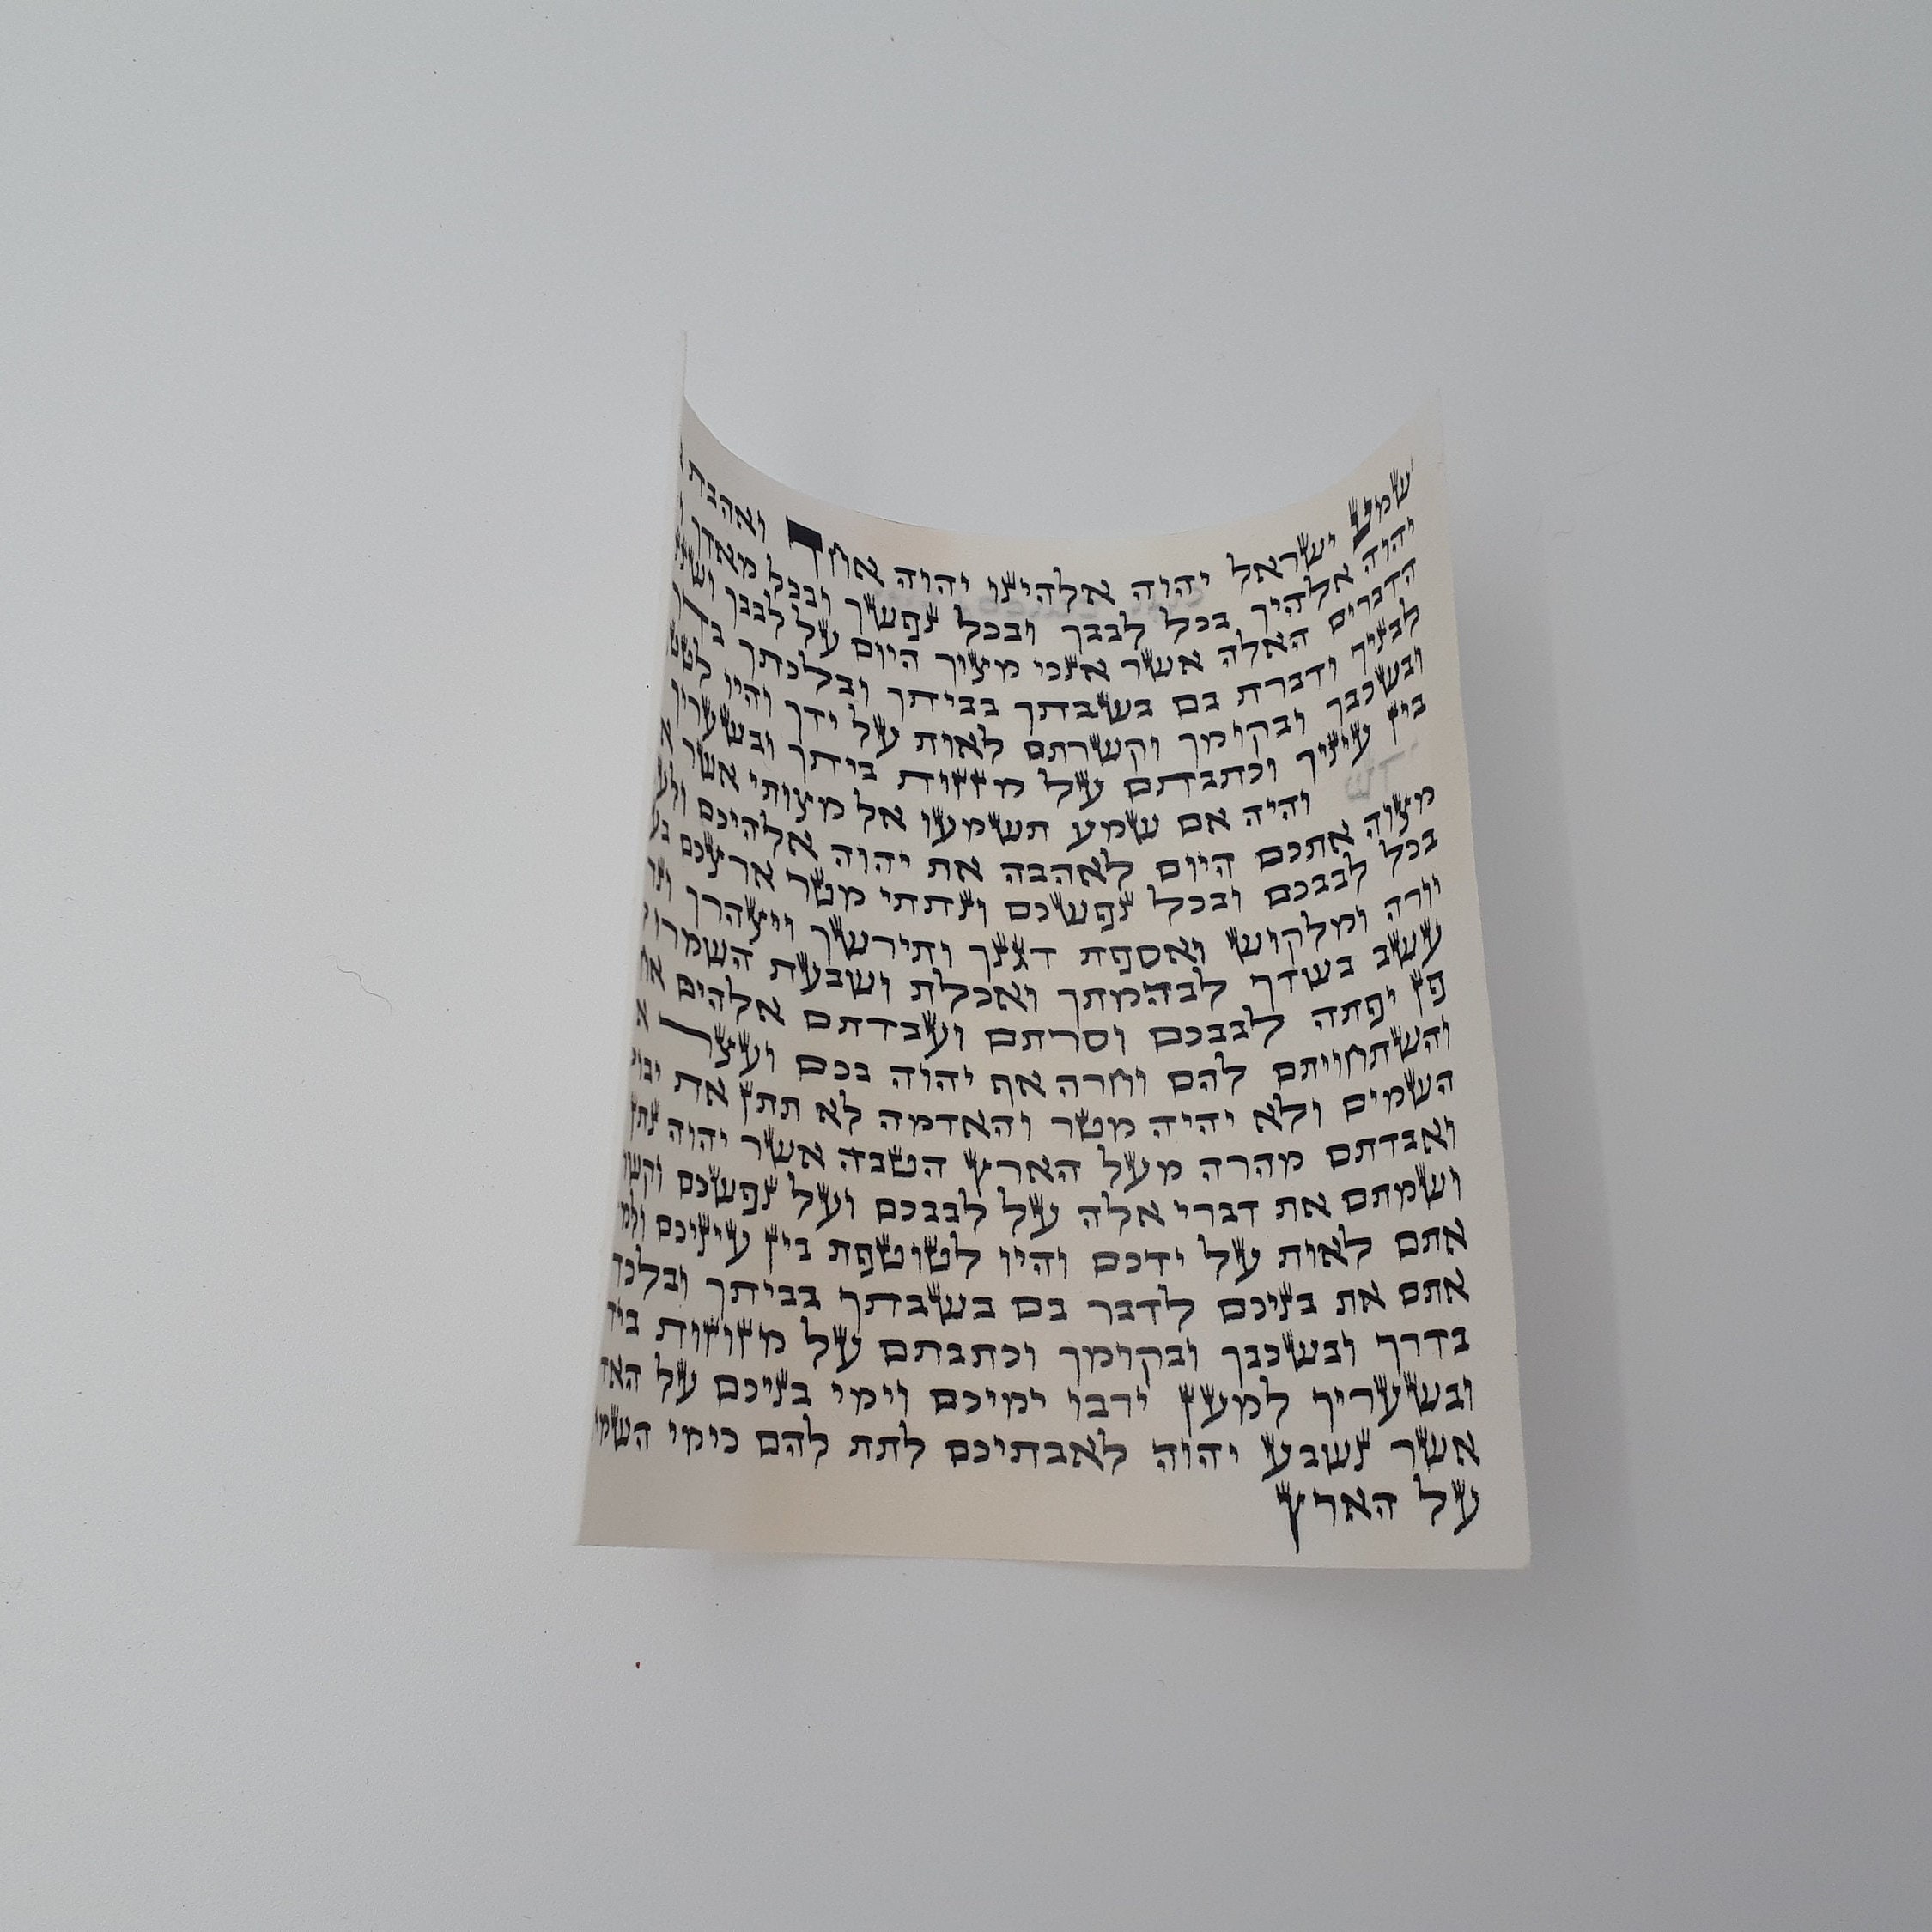 שמע ישראל יהוה אלהינו יהוה אחד ואהבת
יהוה אלהיך בכל לבבך ובכל נפשך ובכל מאדך
הדברים האלה אשר אנכי מצוך היום על לבבך
לבניך ודברת בם בשבתך בביתך ובלכתך בדרך
ובשכבך ובקומך וקשרתם לאות על ידך והיו
בין עיניך וכתבתם על מזזות ביתך ובשעריך
והיה אם שמע תשמעו אל מצותי אשר
מצוה אתכם היום לאהבה את יהוה אלהיכם
בכל לבבכם ובכל נפשכם ונתתי מטר ארצכם
יורה ומלקוש ואספת דגנך ותירשך ויצהרך
עשב בשדך לבהמתך ואכלת ושבעת השמרו
פן יפתה לבבכם וסרתם ועבדתם אלהים
והשתחויתם להם וחרה אף יהוה בכם ועצר
השמים ולא יהיה מטר והאדמה לא תתן את
ואבדתם מהרה מעל הארץ הטבה אשר יהוה נתן
ושמתם את דברי אלה על לבבכם ועל נפשכם
אתם לאות על ידכם והיו לטוטפת בין עיניכם
אתם את בניכם לדבר בם בשבתך בביתך
בדרך ובשכבך ובקומך וכתבתם על מזוזות
ובשעריך למען ירבו ימיכם וימי בניכם על
אשר נשבע יהוה לאבתיכם לתת להם כימי
על הארץ